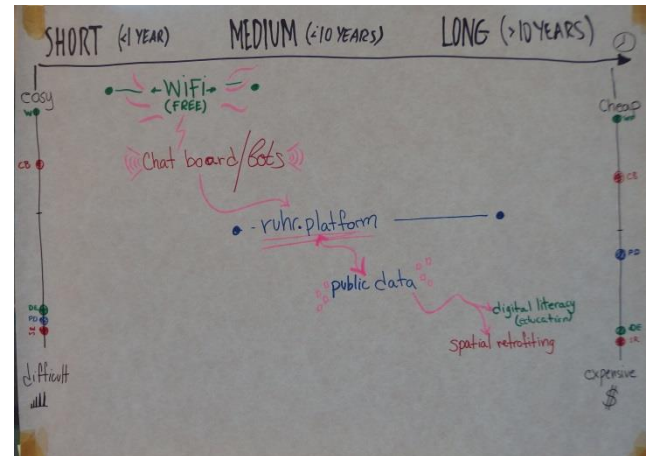 SHORT (<1 YEAR) MEDIUM (<10 YEARS) LONG (>10 YEARS)
cosy
Cheap
WiFi
(FREE)
CB
Chat board/Bots
CB
ruhr.platform
PD
public data
DE
PD
SR
digital literacy
(education)
DE
spatial retrofiting
SR
difficult
expensive
$